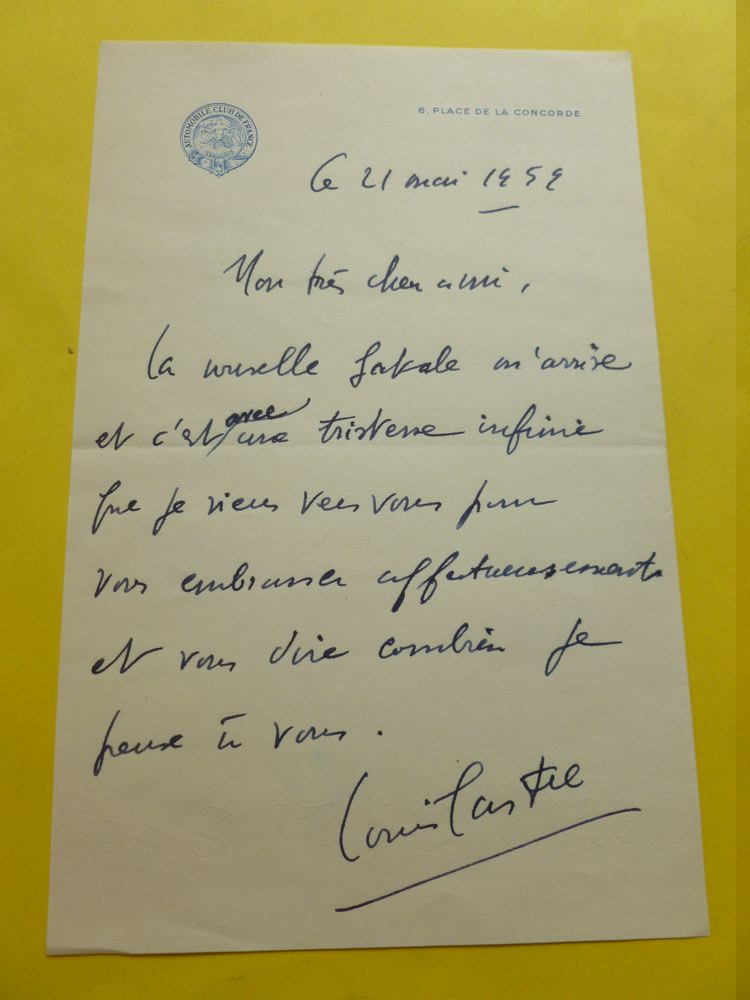 AUTOMOBILE CLUB DE FRANCE
6, PLACE DE LA CONCORDE
Le 21 mai 1959
Mon très cher ami,
La nouvelle fatale m'arrive
et c'est avec une tristesse infinie
que je viens vers vous pour
vous embrasser affectueusement
et vous dire combien je
pense à vous.
Louis